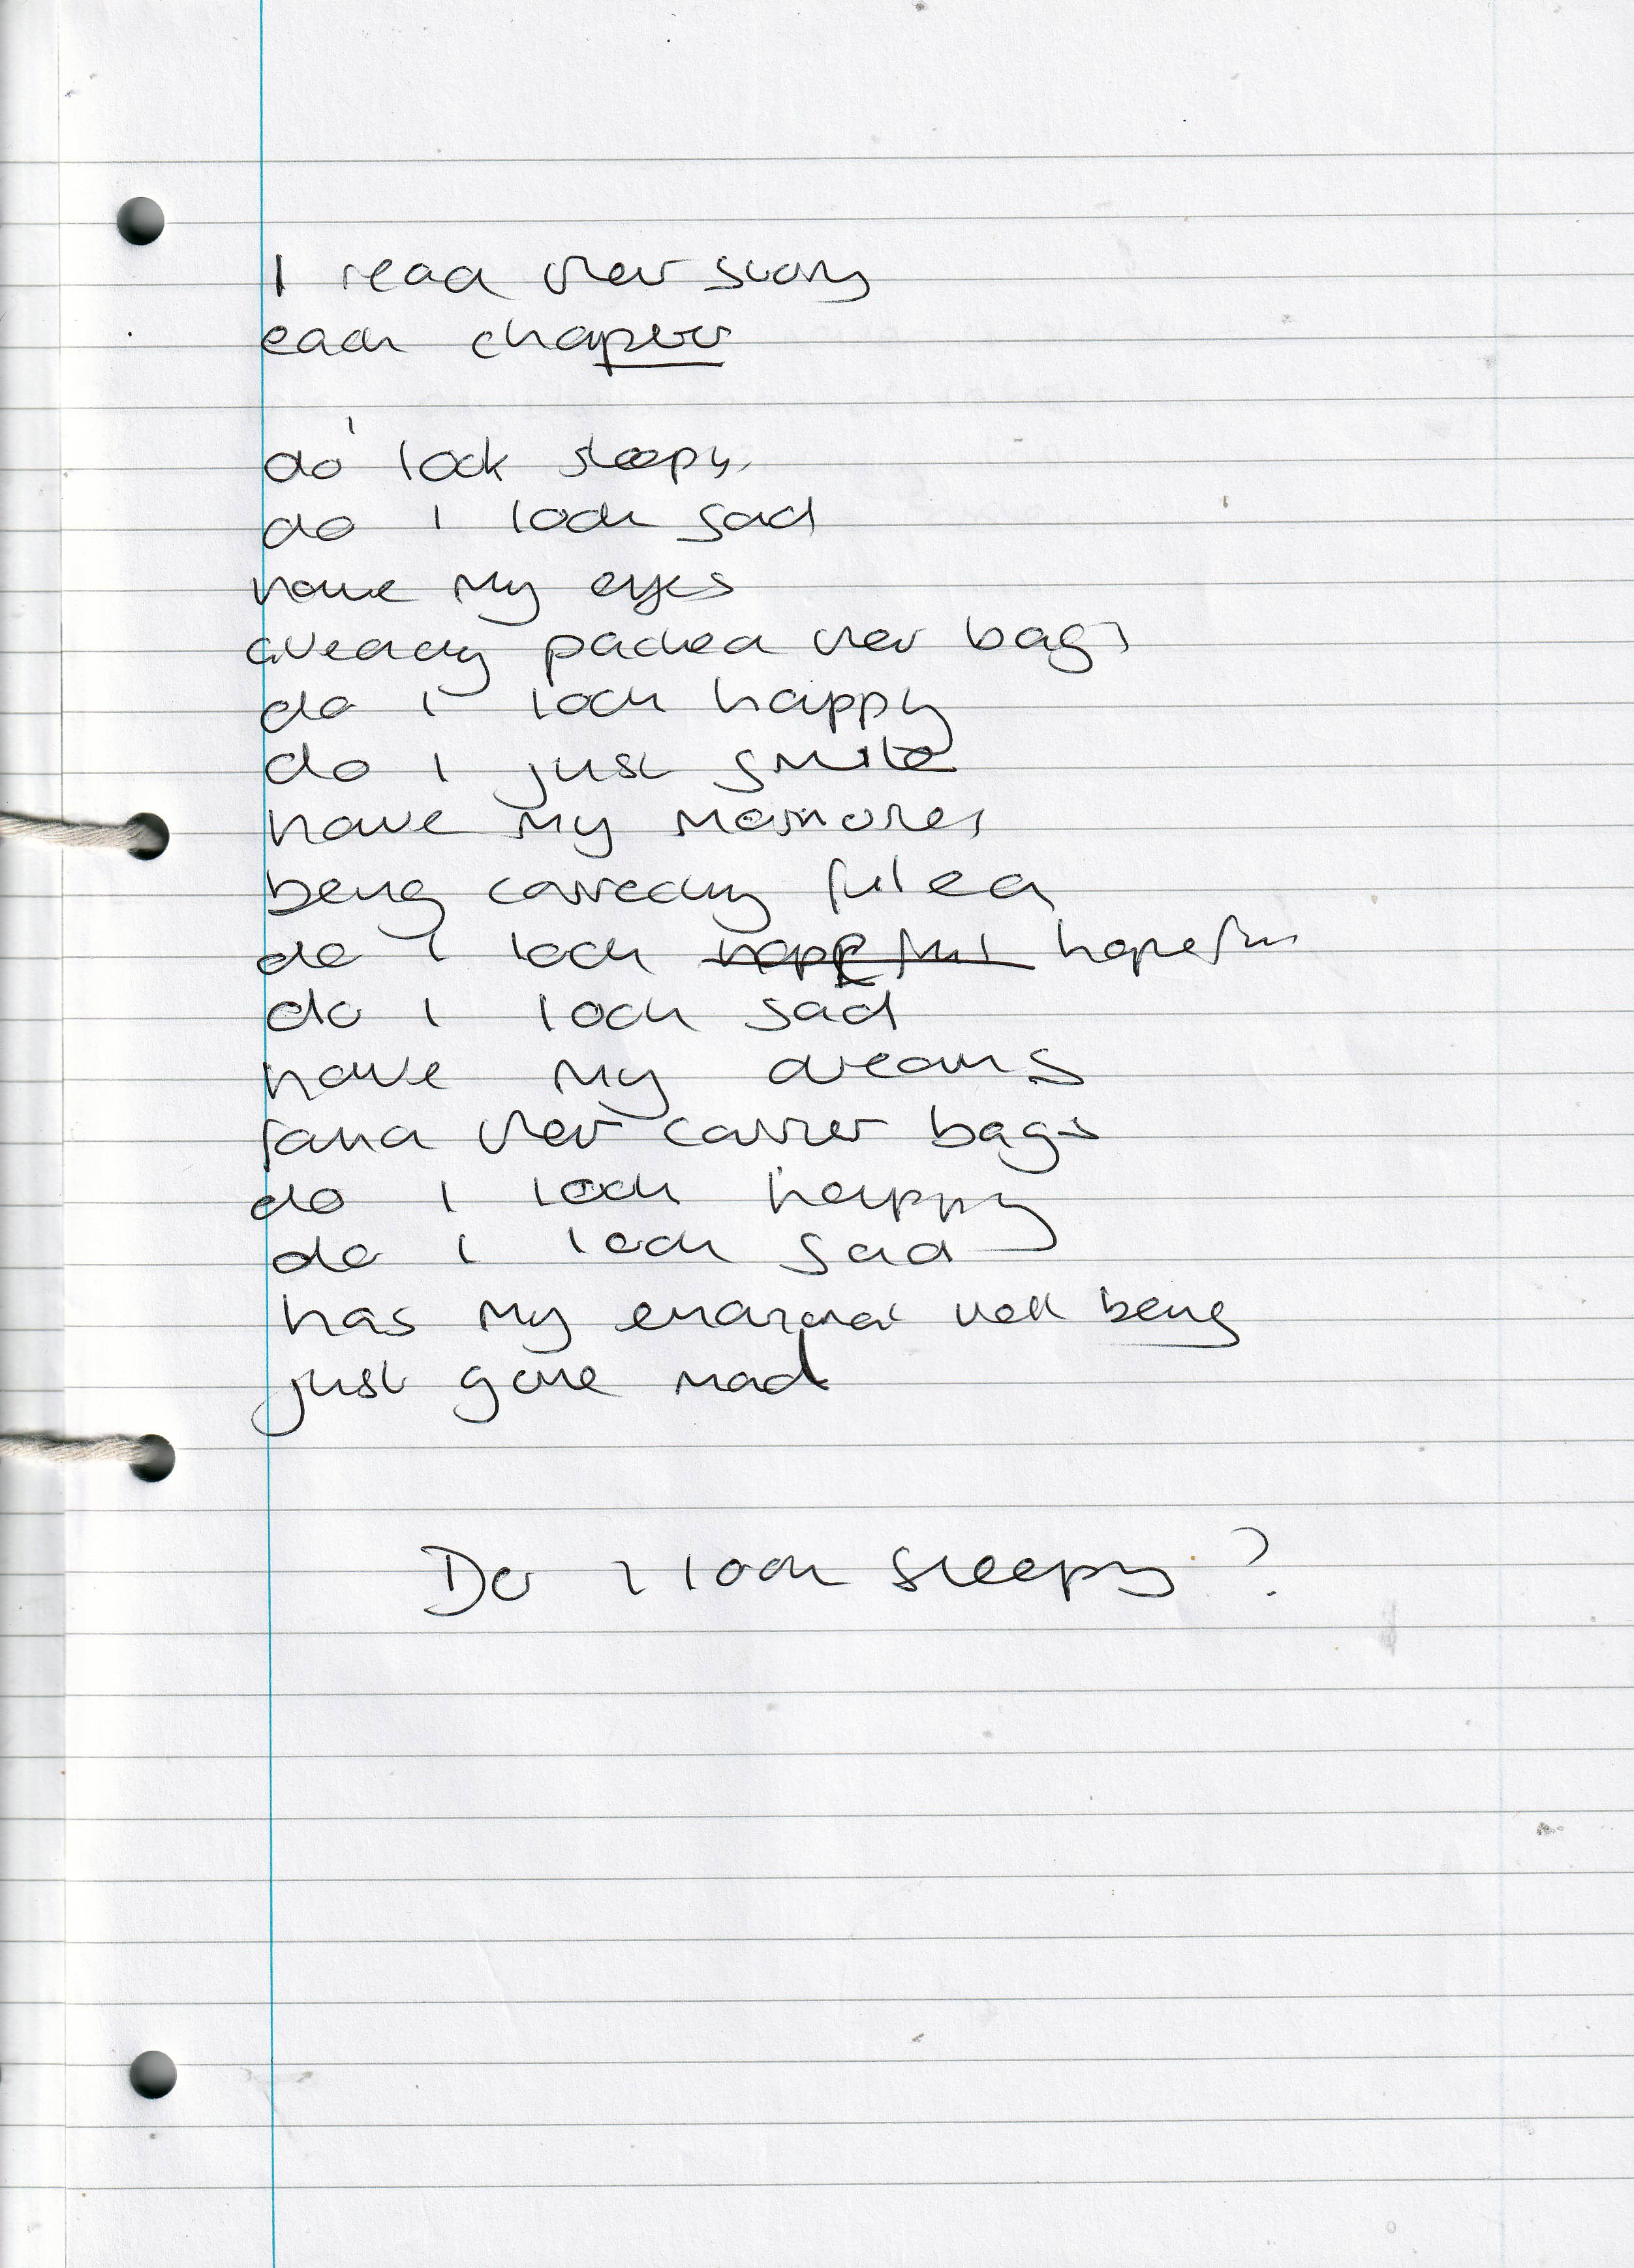 I read their story
each chapter
do I look sleepy
do I look sad
have my eyes
already packed their bags
do I look happy
do I just smile
have my memories
being correctly filed
do I look hopeful hopeful
do I look sad
have my dreams
found their carrier bags
do I look happy
do I look sad
has my emotional well being
just gone mad
Do I look sleepy?